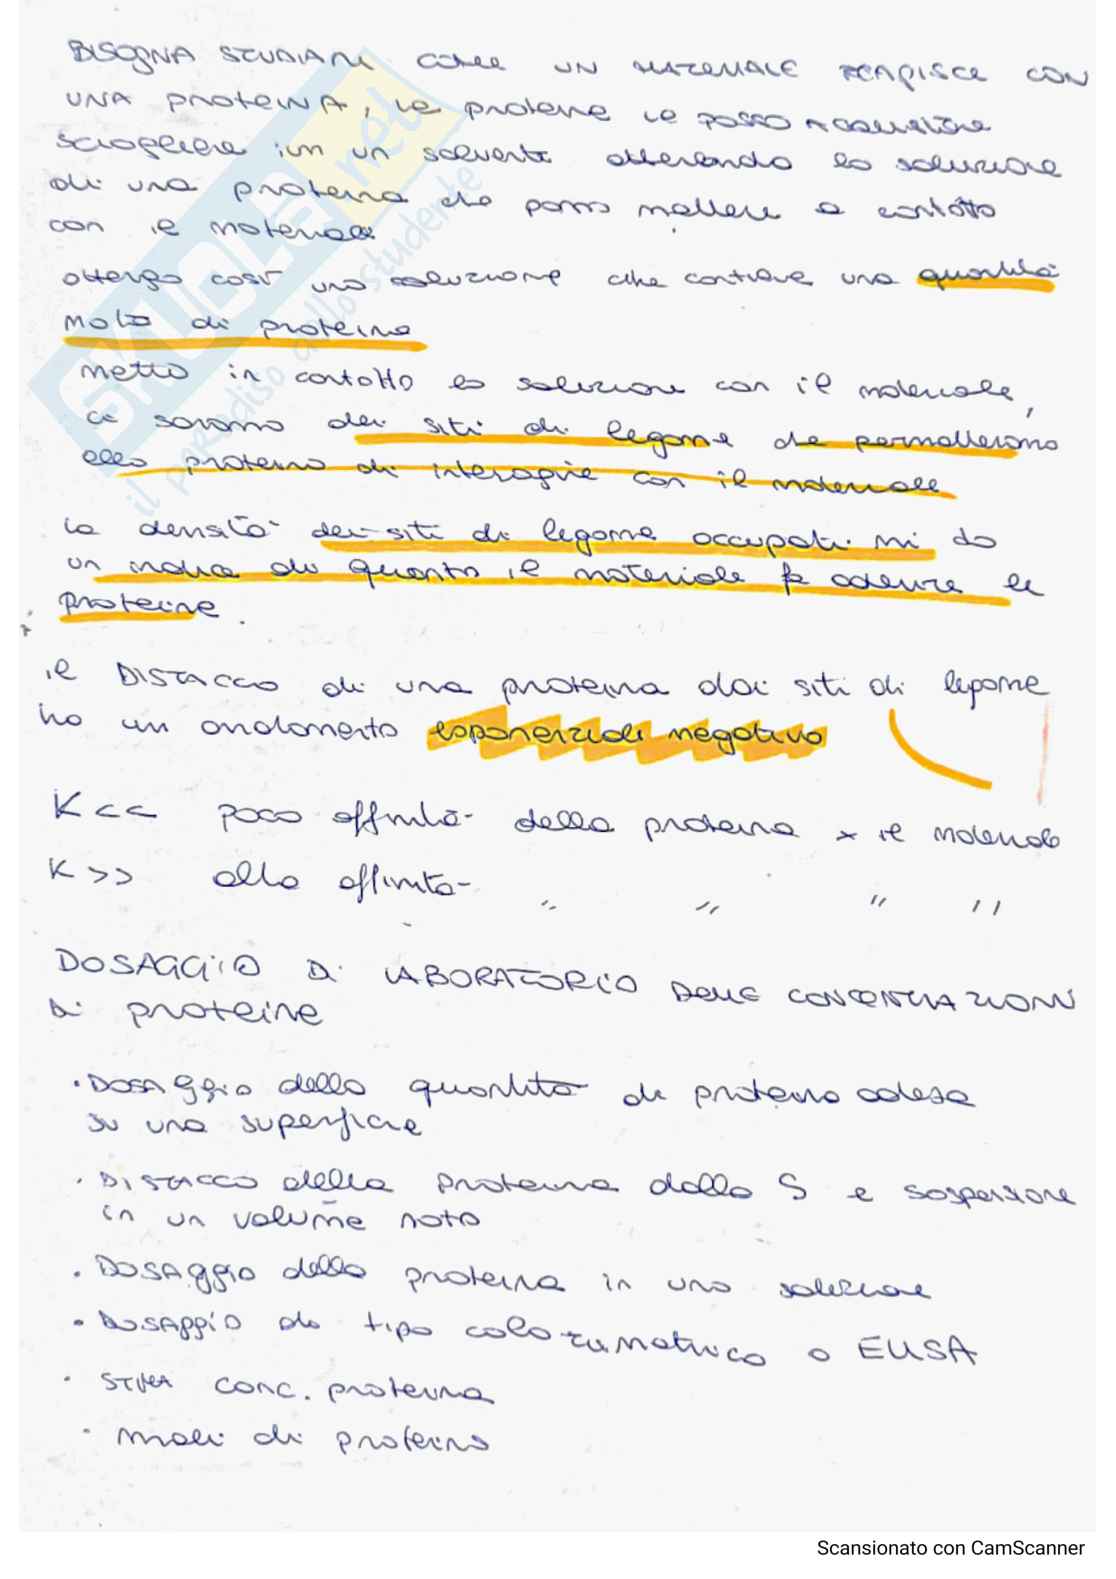 BISOGNA STUDIARE come UN MATERIALE REAGISCE CON
UNA PROTEINA, le proteine le posso acquistare
sciogliere in un solvente ottenendo la soluzione
di una proteina che posso mettere a contatto
con il materiale
ottengo così una soluzione che contiene una quantità
nota di proteina
metto in contatto la soluzione con il materiale,
ci saranno dei siti di legame che permetteranno
alla proteina di interagire con il materiale
la densità dei siti di legame occupati mi da
un indice di quanto il materiale fa aderire le
proteine.
il DISTACCO di una proteina dai siti di legame
ha un andamento esponenziale negativo
K << poca affinità della proteina x il materiale
K >> alta affinità " " " "
DOSAGGIO DI LABORATORIO DELLE CONCENTRAZIONI
DI proteine
• Dosaggio della quantità di proteina adesa
su una superficie
• Distacco della proteina dalla S e sospensione
in un volume noto
• Dosaggio della proteina in una soluzione
• Dosaggio di tipo colorimetrico o ELISA
• STIMA conc. proteina
• moli di proteina
SKUOLA.net
il paradiso dello studente
Scansionato con CamScanner